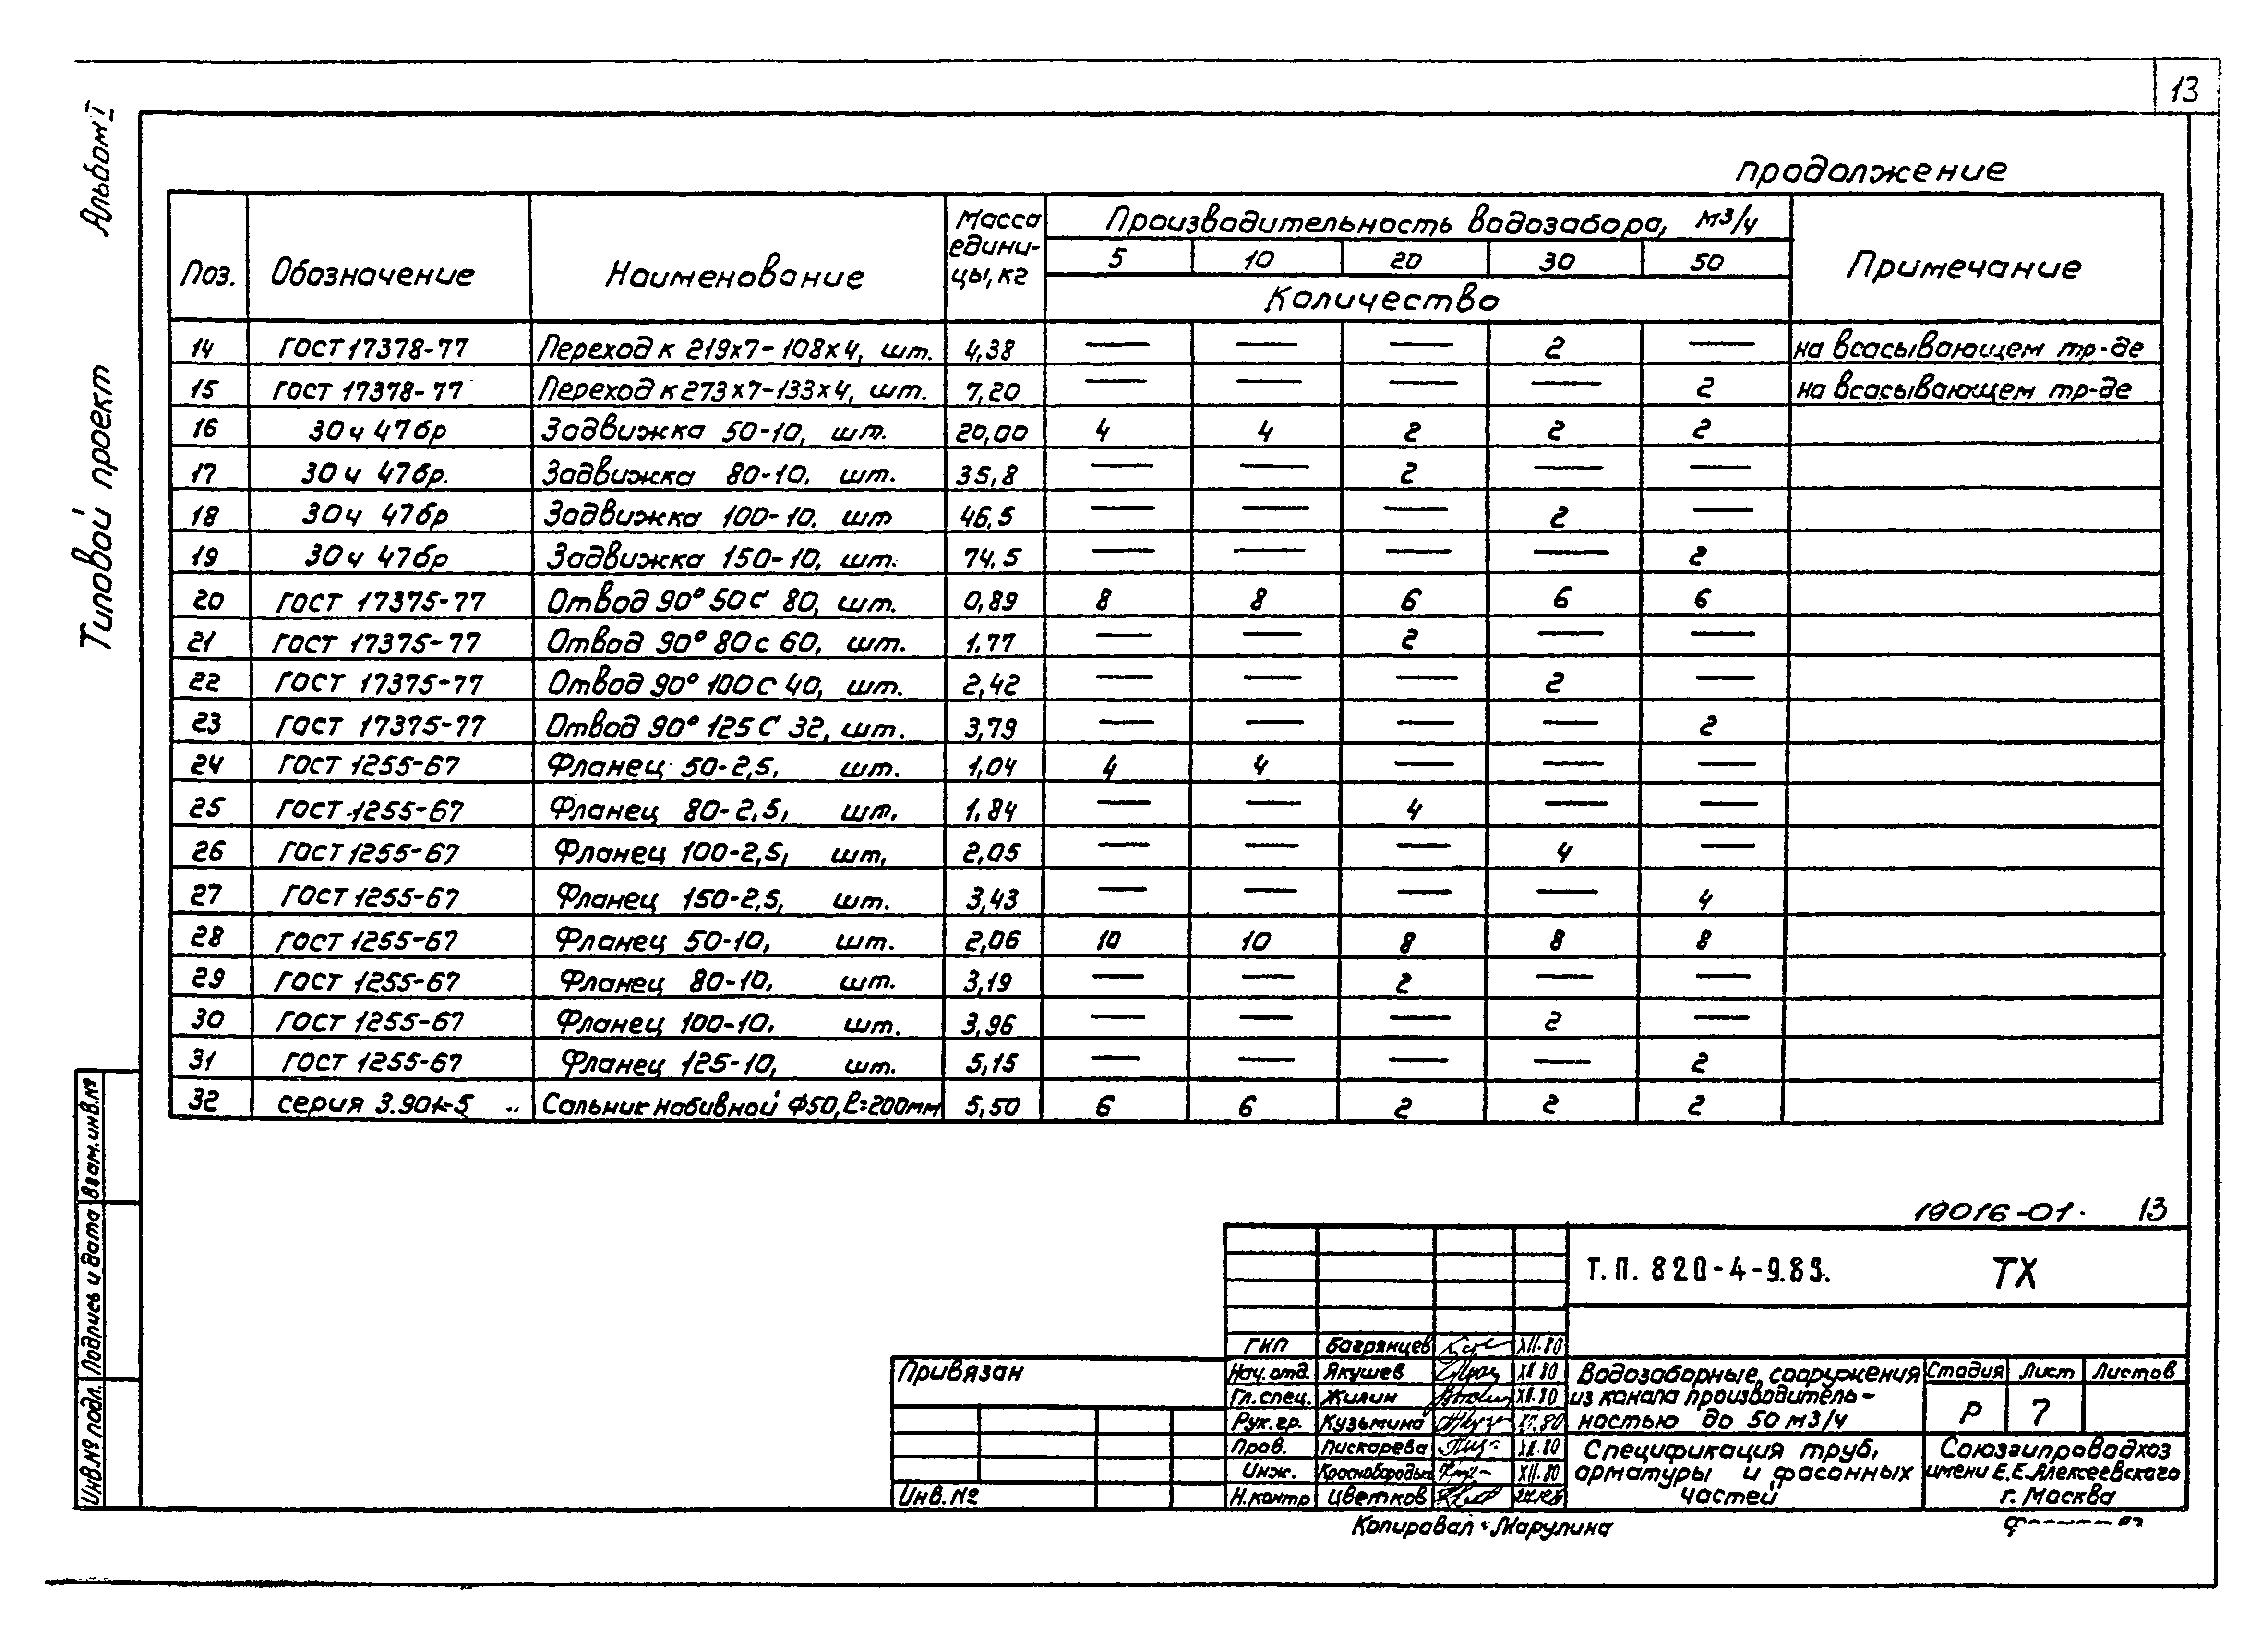 13
Альбом I
Типовой проект
продолжение
Поз. Обозначение Наименование Масса едини-цы, кг Производительность водозабора, м3/ч Примечание
5 10 20 30 50
Количество
14 ГОСТ 17378-77 Переход к 219х7-108х4, шт. 4,38 — — — 2 — на всасывающем тр-де
15 ГОСТ 17378-77 Переход к 273х7-133х4, шт. 7,20 — — — — 2 на всасывающем тр-де
16 30ч 47бр Задвижка 50-10, шт. 20,00 4 4 2 2 2
17 30ч 47бр. Задвижка 80-10, шт. 35,8 — — 2 — —
18 30ч 47бр Задвижка 100-10. шт 46,5 — — — 2 —
19 30ч 47бр Задвижка 150-10, шт. 74,5 — — — — 2
20 ГОСТ 17375-77 Отвод 90° 50С 80, шт. 0,89 8 8 6 6 6
21 ГОСТ 17375-77 Отвод 90° 80с 60, шт. 1.77 — — 2 — —
22 ГОСТ 17375-77 Отвод 90° 100С 40, шт. 2,42 — — — 2 —
23 ГОСТ 17375-77 Отвод 90° 125С 32, шт. 3,79 — — — — 2
24 ГОСТ 1255-67 Фланец 50-2,5, шт. 1,04 4 4 — — —
25 ГОСТ 1255-67 Фланец 80-2,5, шт. 1,84 — — 4 — —
26 ГОСТ 1255-67 Фланец 100-2,5, шт. 2,05 — — — 4 —
27 ГОСТ 1255-67 Фланец 150-2,5, шт. 3,43 — — — — 4
28 ГОСТ 1255-67 Фланец 50-10, шт. 2,06 10 10 8 8 8
29 ГОСТ 1255-67 Фланец 80-10, шт. 3,19 — — 2 — —
30 ГОСТ 1255-67 Фланец 100-10. шт. 3,96 — — — 2 —
31 ГОСТ 1255-67 Фланец 125-10, шт. 5,15 — — — — 2
32 серия 3.901-5 Сальник набивной Ф50, ℓ=200мм 5,50 6 6 2 2 2
19016-01. 13
Т.П. 820-4-9.83. ТХ
ГИП Багрянцев XII.80
Нач.отд. Якушев XII 80
Гл.спец. Жилин XII.80
Рук.гр. Кузьмина XII.80
Пров. Пискарева XII.80
Инж. Краснобородько XII.80
Н.контр Цветков
Водозаборные сооружения
из канала производитель-
ностью до 50 м3/ч
Стадия Лист Листов
Р 7
Спецификация труб,
арматуры и фасонных
частей
Союзгипроводхоз
имени Е.Е.Алексеевского
г. Москва
Привязан
Инв.№
Копировал: Марулина
Инв.№ подл. Подпись и дата Взам.инв.№